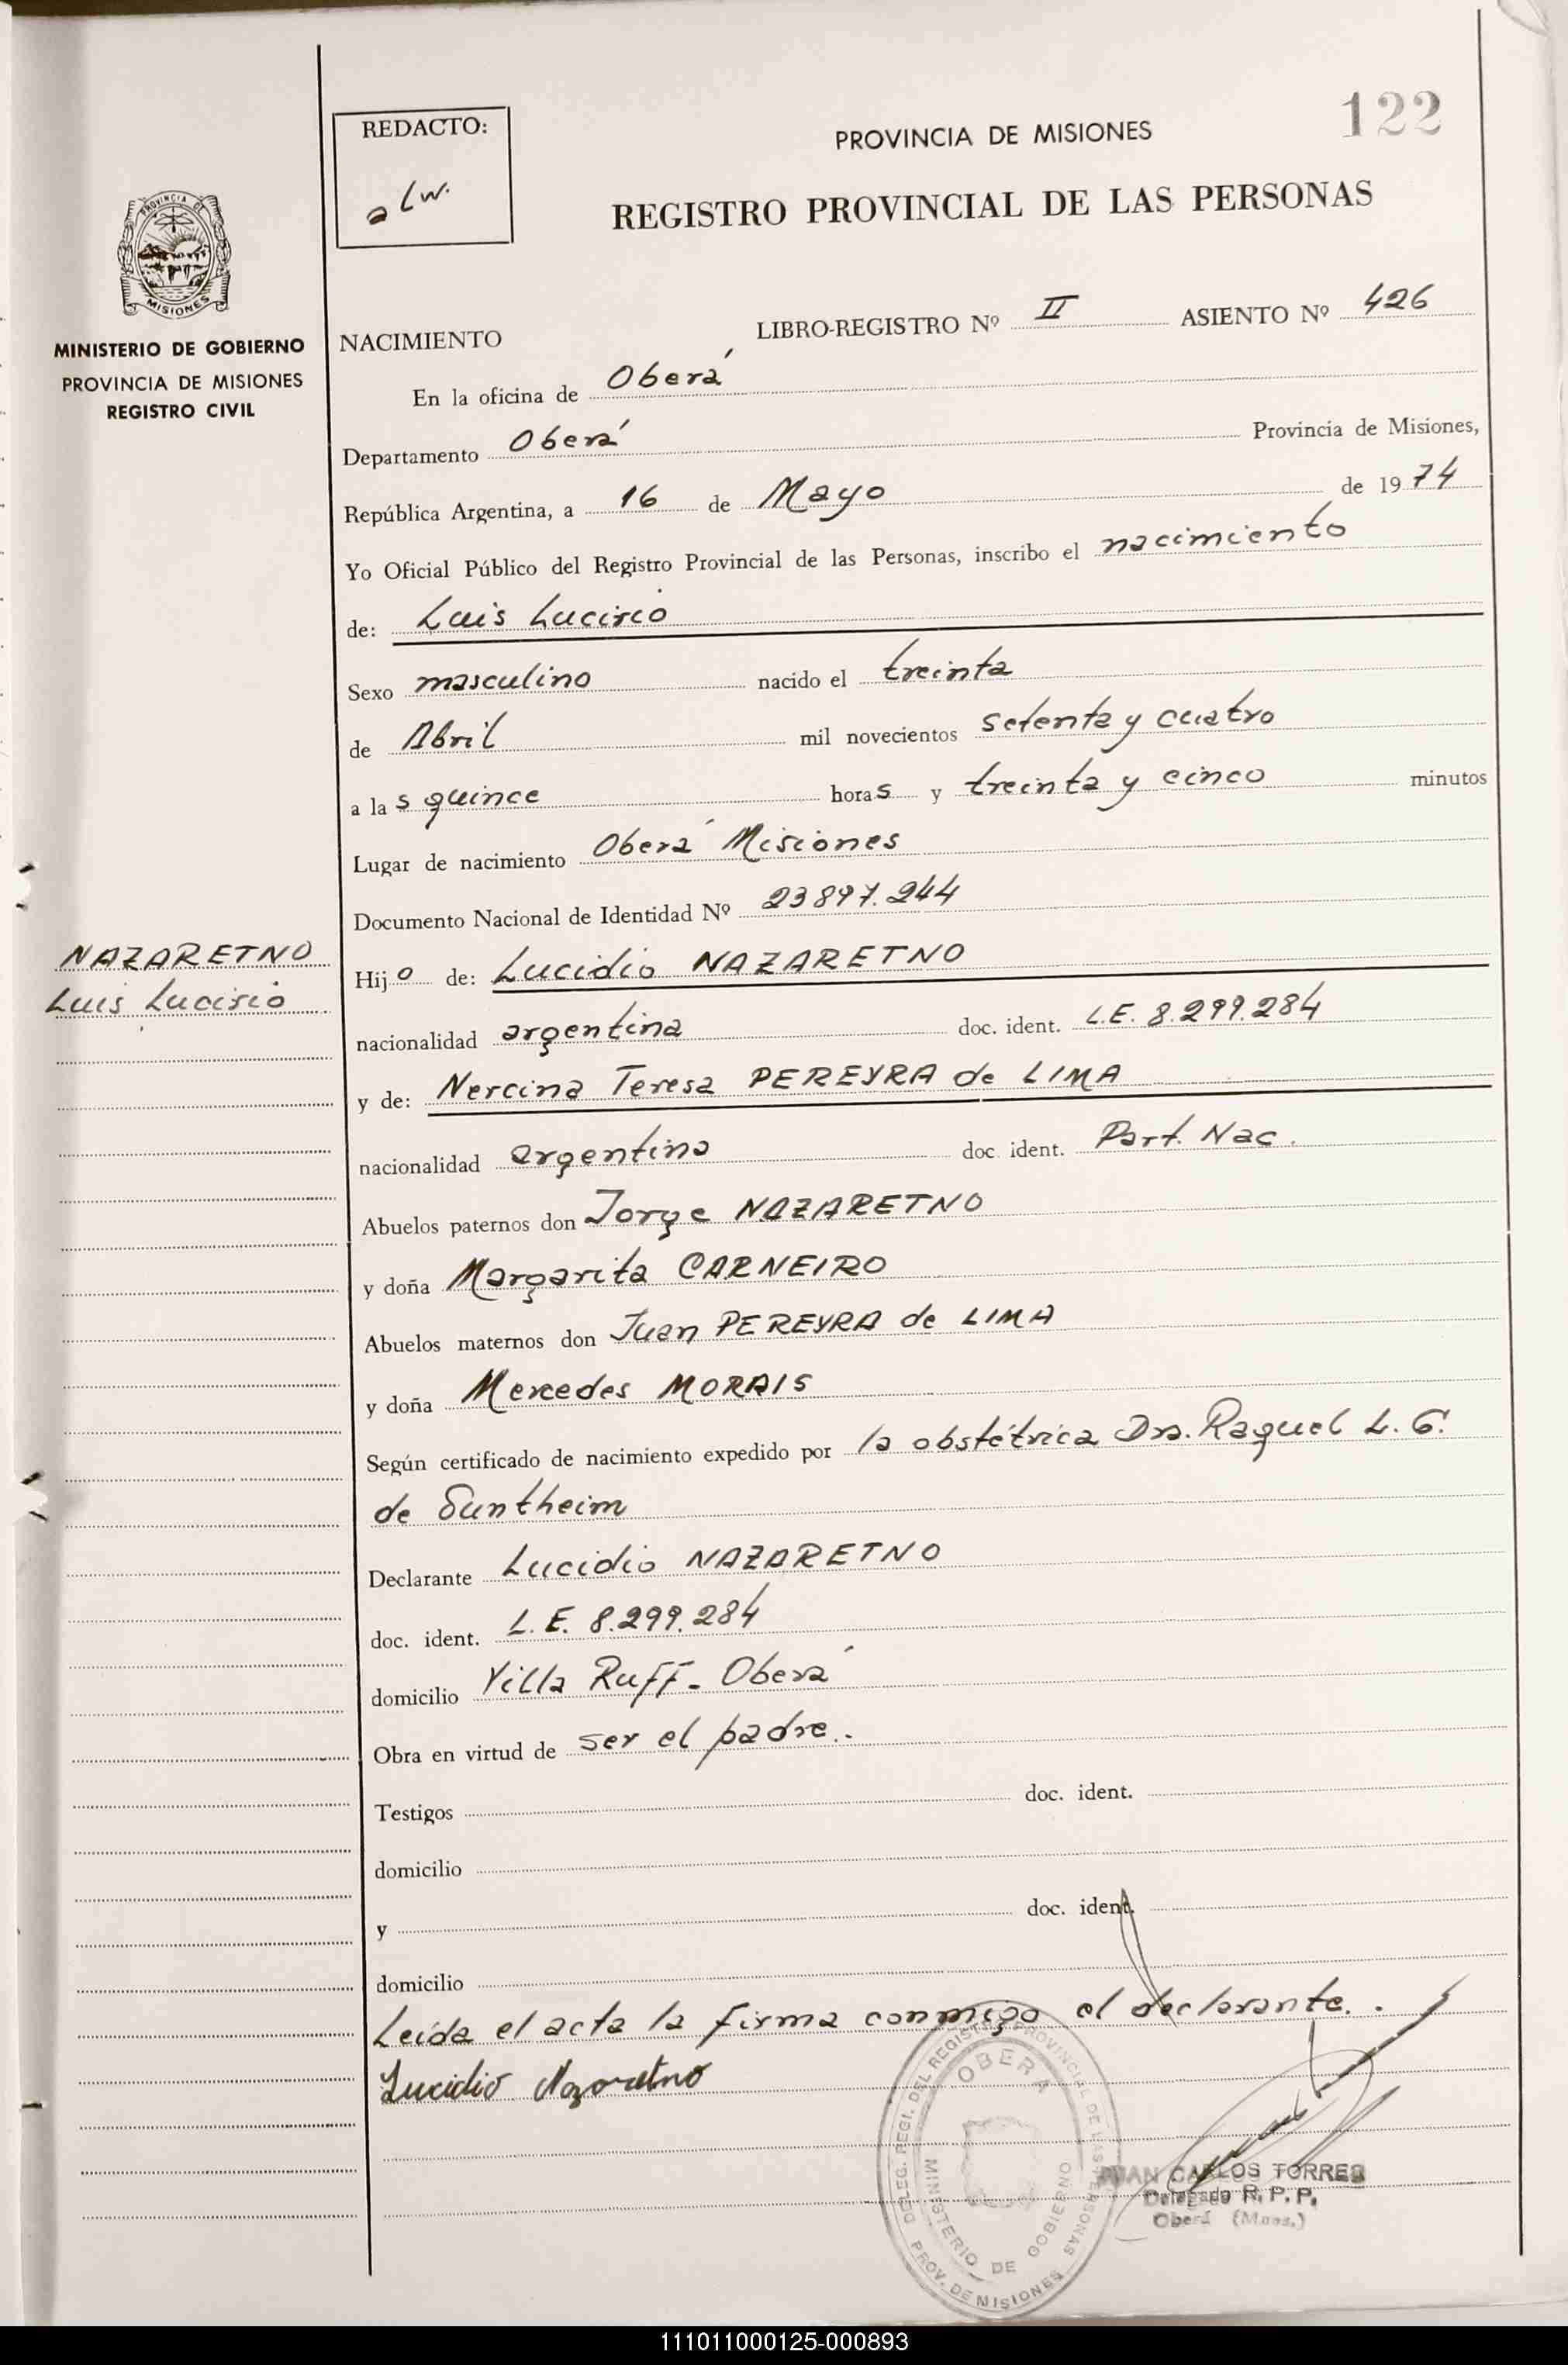 122
REDACTO:
a Lw.
PROVINCIA DE MISIONES
REGISTRO PROVINCIAL DE LAS PERSONAS
PROVINCIA DE
MISIONES
MINISTERIO DE GOBIERNO
PROVINCIA DE MISIONES
REGISTRO CIVIL
NACIMIENTO LIBRO-REGISTRO Nº II ASIENTO Nº 426
En la oficina de Oberá
Departamento Oberá Provincia de Misiones,
República Argentina, a 16 de Mayo de 1974
Yo Oficial Público del Registro Provincial de las Personas, inscribo el nacimiento
de: Luis Lucirio
Sexo masculino nacido el treinta
de Abril mil novecientos setenta y cuatro
a las quince horas y treinta y cinco minutos
Lugar de nacimiento Oberá Misiones
Documento Nacional de Identidad Nº 23897.244
NAZARETNO
Luis Lucirio
Hijo de: Lucidio NAZARETNO
nacionalidad argentina doc. ident. L.E. 8.299.284
y de: Nercina Teresa PEREYRA de LIMA
nacionalidad argentina doc. ident. Part. Nac.
Abuelos paternos don Jorge NAZARETNO
y doña Margarita CARNEIRO
Abuelos maternos don Juan PEREYRA de LIMA
y doña Mercedes MORAIS
Según certificado de nacimiento expedido por la obstétrica Dra. Raquel L. G.
de Suntheim
Declarante Lucidio NAZARETNO
doc. ident. L. E. 8.299.284
domicilio Villa Ruff - Oberá
Obra en virtud de ser el padre.
Testigos doc. ident.
domicilio
y doc. ident.
domicilio
Leída el acta la firma conmigo el declarante.
Lucidio Nazaretno
DELEG. REGI. DEL REGISTRO PROVINCIAL DE LAS PERSONAS
OBERA
MINISTERIO DE GOBIERNO
PROV. DE MISIONES
JUAN CARLOS TORRES
Delegado R. P. P.
Oberá (Mnes.)
111011000125-000893